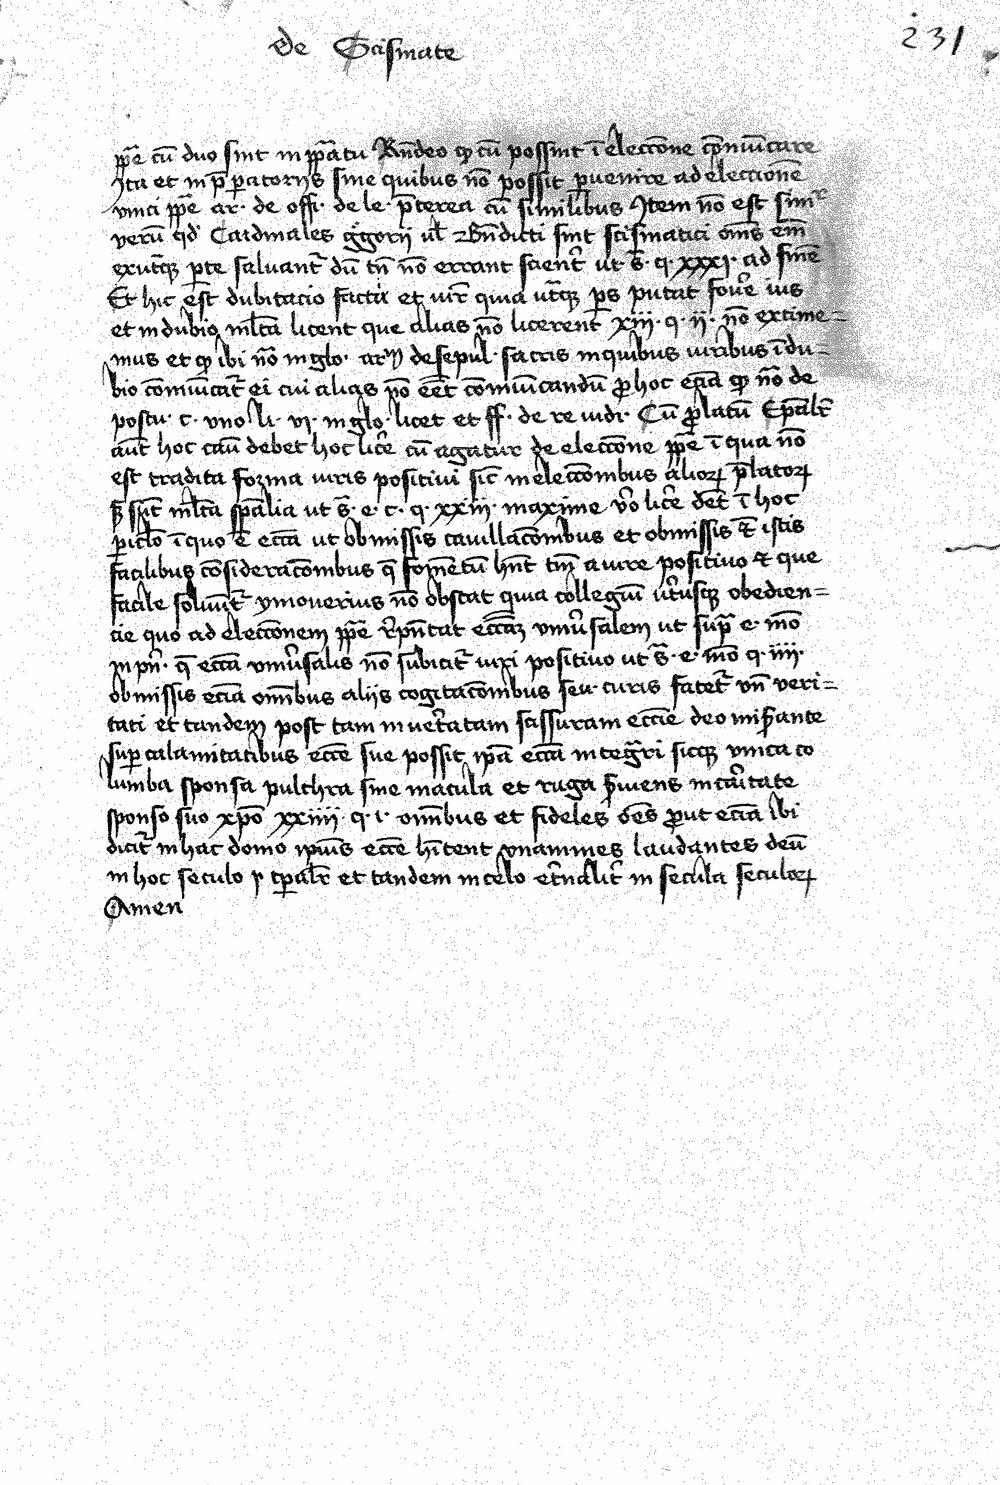 De Scismate
231
ppē cū duo sint in ppātu Rn̄deo qp cū possint ī eleccōne cōmūicare
Ita et in p̄patoriis sine quibus nō possit puenire ad eleccionē
vnici ppē ar· de offi· dele· p̄terea cū similibus Item nō est simr̄
verū qd Cardinales g̓gorii ul̄ Bn̄dicti sint scismatici om̄s em̄
exutq̄ꝫ pte saluant᷑ dū tn̄ nō errant scient᷑ ut s̄· q· xxxi· ad finē
Et hic est dubitacio facti et iur̄ quia utq̄ꝫ ps putat fou̓e ius
et in dubio ml̄ta licent que alias nō licerent xiii· q· ii· nō extime=
mus et qp ibi nō in glo· ar· de sepul· sacris in quibus iuribus ī du=
bio cōmūicat᷑ ei cui alias nō eēt cōmūicandū p hoc eciā qp nō de
postu· c· vno li· vi· in glo· licet et ff· de re iudi· Cū platū Ep̄alr̄
aūt hoc casū debet hoc lic̓e cū agatur de eleccōne ppē ī qua nō
est tradita forma iuris positiui sic̄ in eleccōnibus alioꝝ p̄latoꝝ
sꝫ sūt ml̄ta sp̄alia ut s̄· e· c· q· xxiii· maxime u̓o lic̓e det ī hoc
pic̄lo ī quo ē ecc̄a ut obmissis cauillacōnibus et obmissis istis
facilibus cōsideracōnibus q̄ fomētū hn̄t tm̄ a iure positiuo et que
facile soluūt᷑ ymouerius nō obstat quia collegiū ut̓usqꝫ obedien=
cie quo ad eleccōnem ppē rp̄n̄tat ecc̄aꝫ vniu̓salem ut sup̄ e· mō
in pn̄· q̄ ecc̄a vniu̓salis nō subicit᷑ iuri positiuo ut s̄· e· mō q· iiii·
obmissis eciā om̄ibus aliis cogitacōnibus seu curis facet᷑ vn̄ veri=
tati et tandem post tam inuet̓atam scissuram ecc̄ie deo mis̓ante
sup calamitatibus ecc̄e sue possit ip̄a ecc̄a integ̓ri sicqꝫ vnica co
lumba sponsa pulchra sine macula et ruga p̓uiens in c̓itate
sponso suo xp̄o xxiiii· q· i· om̄ibus et fideles oēs put eciā ibi
dicit᷑ in hac domo ip̄ius ecc̄e hītent vnanimes laudantes deū
in hoc seculo p tp̄alr̄ et tandem in celo et̓nalit̓ in secula seculoꝝ
Amen